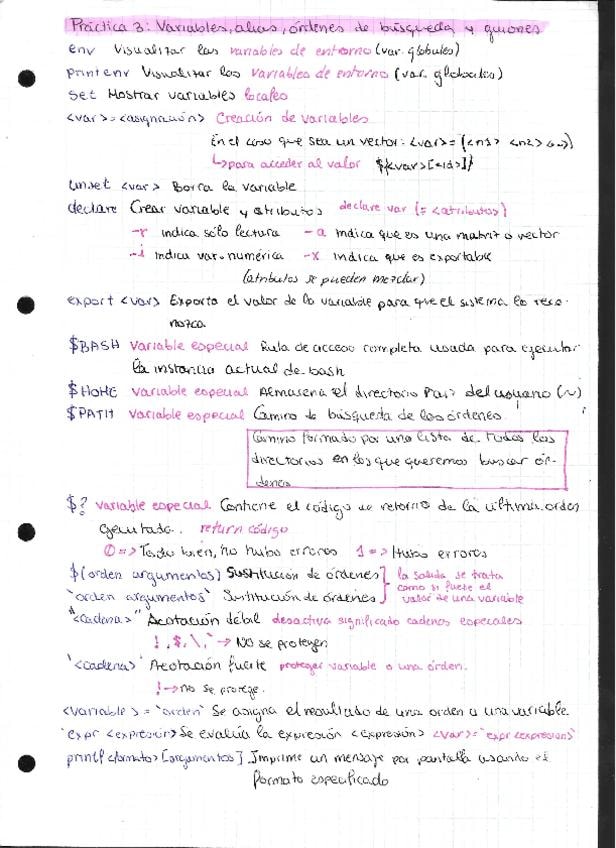 Práctica 3: Variables, alias, órdenes de búsqueda y guiones
env Visualizar las variables de entorno (var. globales)
printenv Visualizar las variables de entorno (var. globales)
set Mostrar variables locales
<var>=<asignación> Creación de variables
En el caso que sea un vector: <var>=(<n1> <n2> ...)
↳para acceder al valor ${<var>[<id>]}
unset <var> Borra la variable
declare Crear variable y atributos declare var (= <atributos>)
-r indica sólo lectura -a indica que es una matriz o vector
-i indica var. numérica -x indica que es exportable
(atributos se pueden mezclar)
export <var> Exporta el valor de la variable para que el sistema lo reco-
nozca
$BASH variable especial Ruta de acceso completa usada para ejecutar
la instancia actual de bash
$HOME variable especial Almacena el directorio raiz del usuario (~)
$PATH variable especial Camino de búsqueda de las órdenes
Camino formado por una lista de todos los
directorios en los que queremos buscar ór-
denes
$? variable especial Contiene el código de retorno de la última orden
ejecutada. return código
0 => Todo bien, no hubo errores 1 => Hubo errores
$(orden argumentos) Sustitución de órdenes } la salida se trata
`orden argumentos` Sustitución de órdenes } como si fuese el
valor de una variable
"<cadena>" Acotación débil desactiva significado cadenas especiales
!,$,\,` → NO se protegen
'<cadena>' Acotación fuerte proteger variable o una órden.
! → no se protege.
<variable> = `orden` Se asigna el resultado de una orden a una variable.
`expr <expresión> Se evalúa la expresión <expresión> <var>=`expr <expresion>`
printf <formato> [argumentos] Imprime un mensaje por pantalla usando el
formato especificado